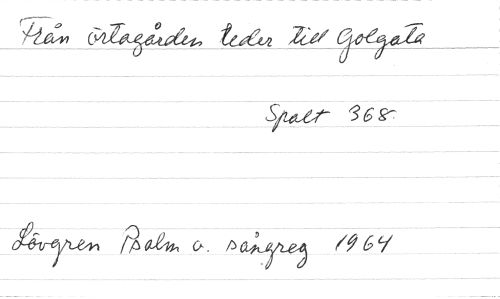 Från örtagården leder till Golgata
Spalt 368.
Lövgren Psalm o. sångreg 1964